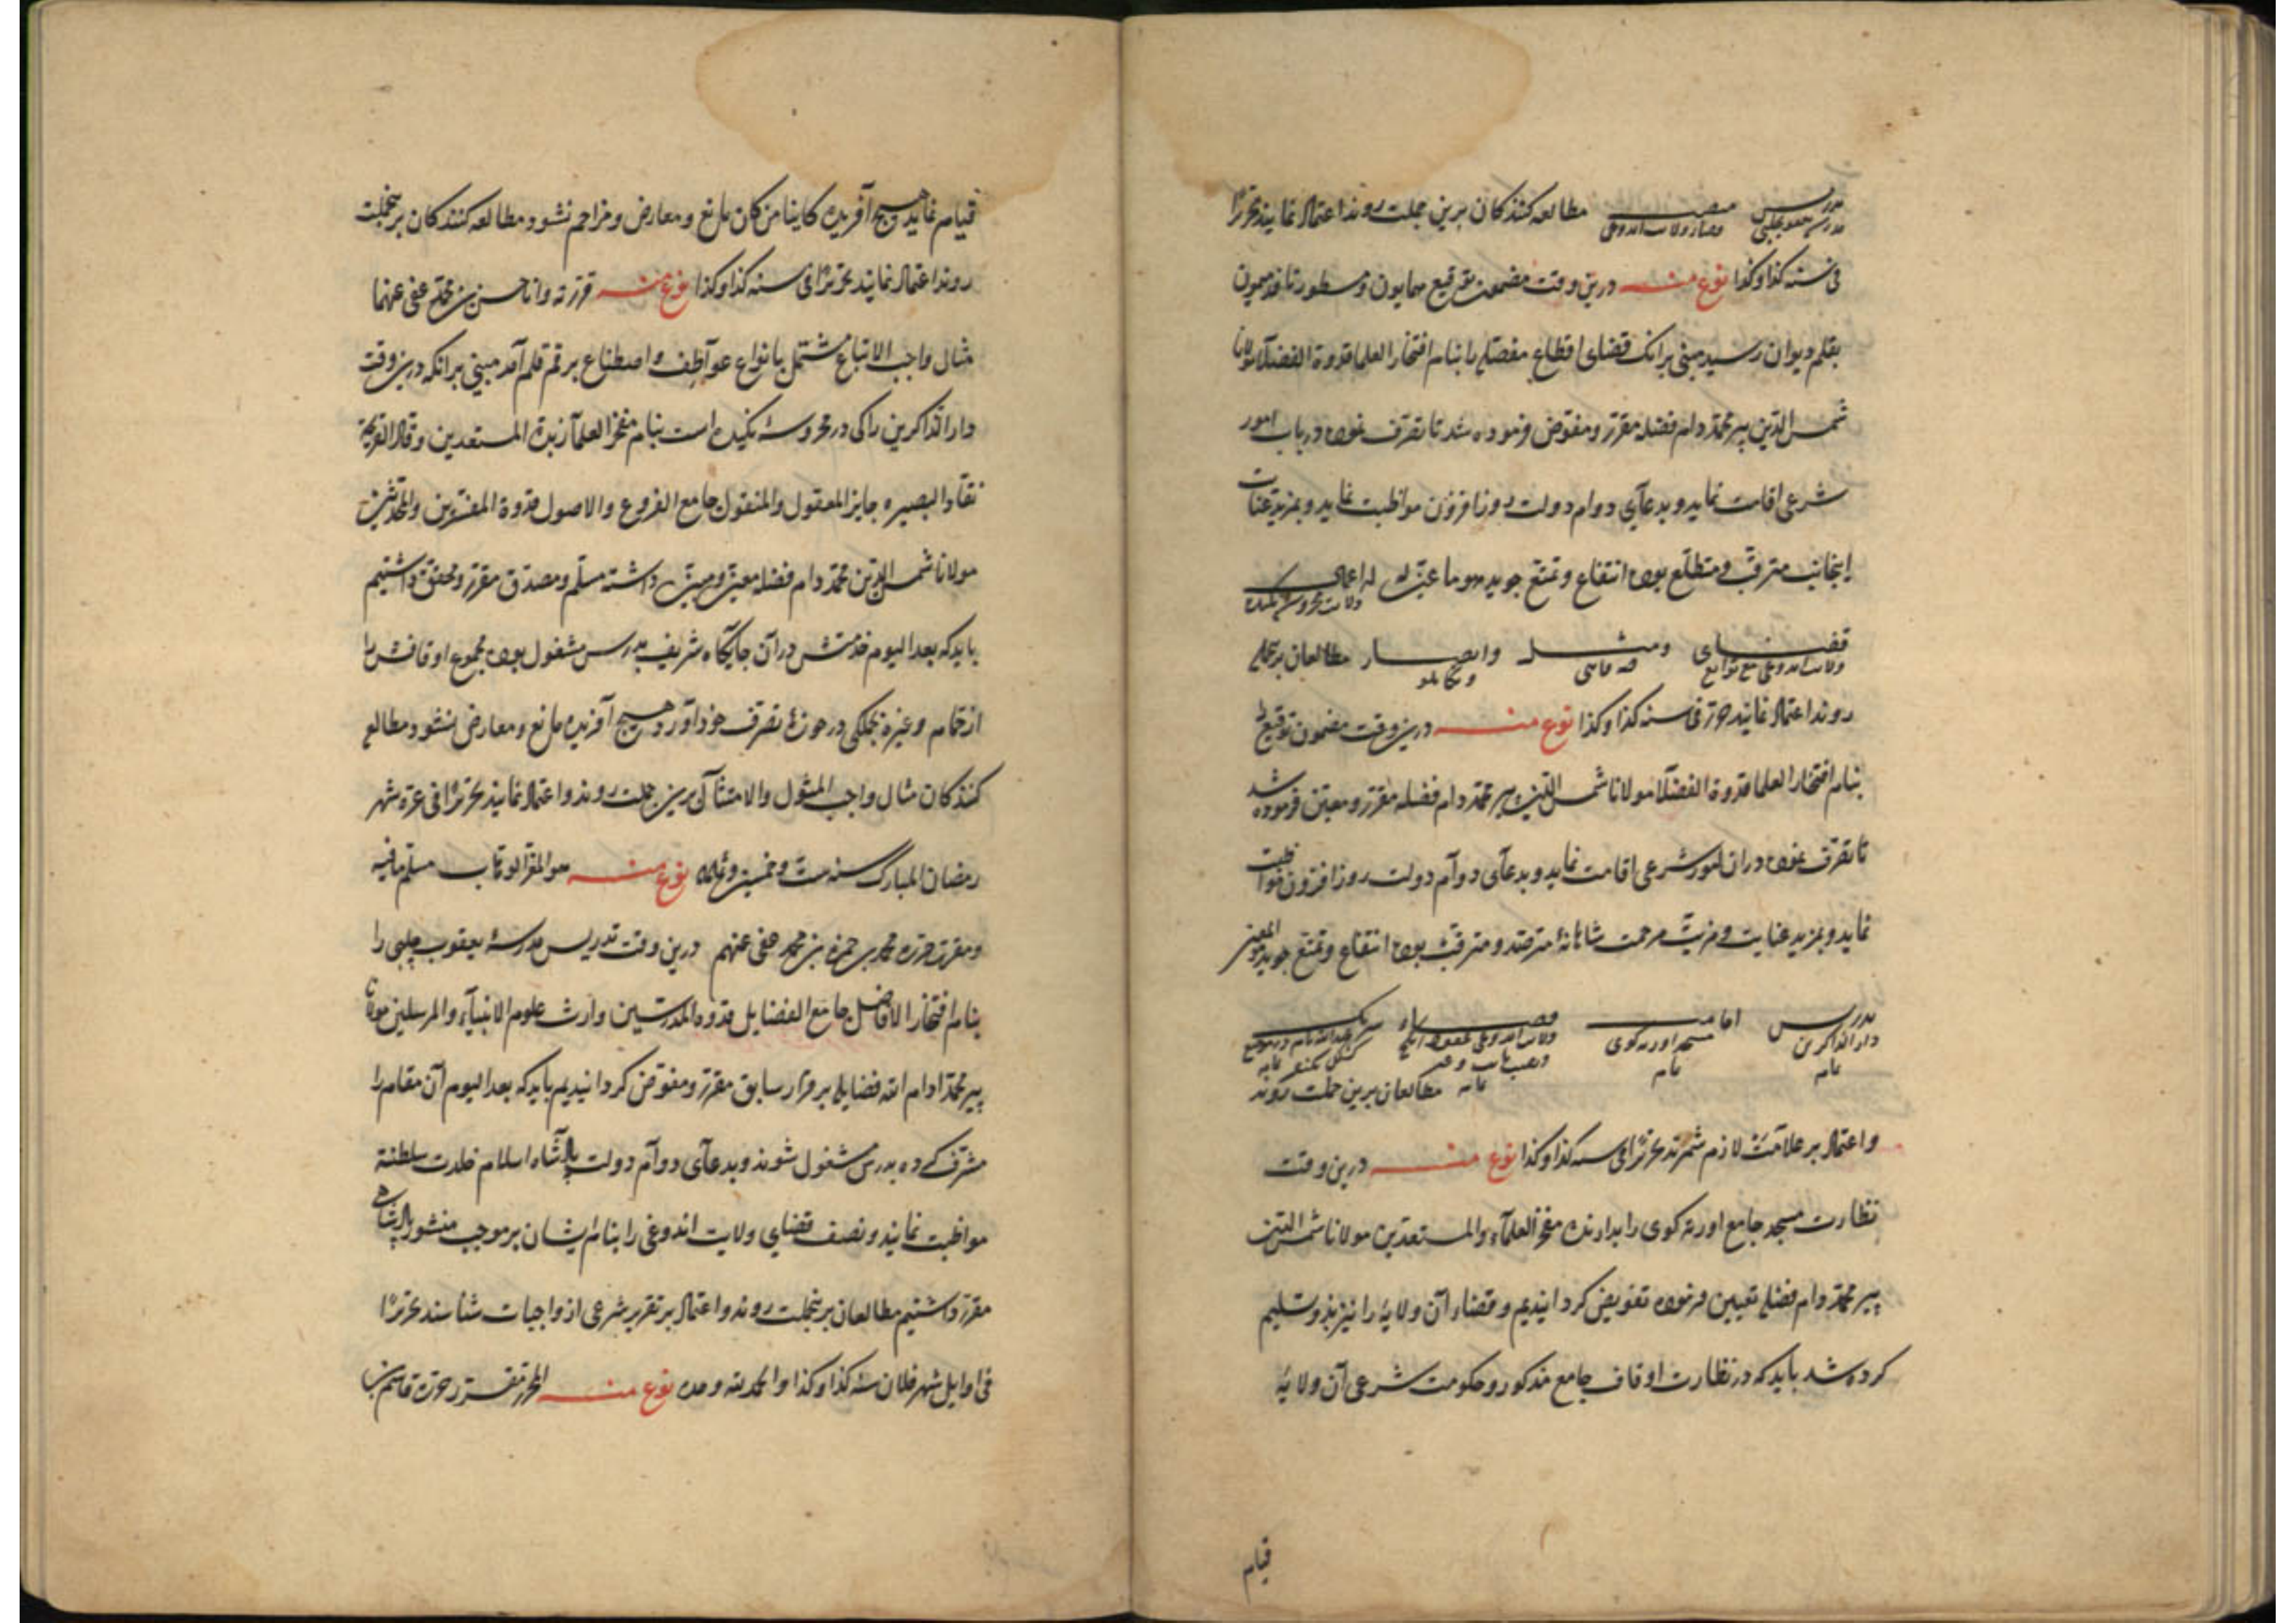 مدرس مدرسه یعقوب چلبی نصف قضاء ولایت اندوغی مطالعه کنندکان برین جملت روند اعتماد نمایند تحریرًا
فی سنه کذا وکذا نوع منه درین وقت مضمون توقیع همایون و مسطور
بقلم دیوان رسید مبنی برانک قضای اقطاع مفصله را بنام افتخار العلما قدوة الفضلا مولانا
شمس الدین پیر محمد دام فضله مقرر و مفوض فرموده شد تا تصرف نموده در باب امور
شرعی اقامت نماید و بدعآی دوام دولت روزافزون مواظبت نماید و بمزید عنایت
اینجانب مترقب و متطلع بوده انتفاع و تمتع جوید
قضای ولایت اندوغی مع توابع و مثل وانصار مطالعان برجملی
روند اعتماد نمایند حرر فی سنه کذا وکذا نوع منه درین وقت مضمون توقیع
بنام افتخار العلما قدوة الفضلآ مولانا شمس الدین پیر محمد دام فضله مقرر و معین فرموده شد
تا تصرف نموده دران امور شرعی اقامت نماید و بدعآی دوآم دولت روزافزون مواظبت
نماید و بمزید عنایت و مزیت مرحمت شاهانه مترصد و مترقب بوده انتفاع و تمتع جوید
مدرس دار الذاکرین امامت مسجد اورته کوی
مطالعان برین جملت روند
و اعتماد بر علامت لازم شمرند تحریرًا فی سنه کذا وکذا نوع منه درین وقت
نظارت مسجد جامع اورته کوی را بدارنده مفخر العلمآء والمستعدین مولانا شمس الدین
پیر محمد دام فضله تعیین فرموده تفویض کردانیدیم و قضاء آن ولایه را نیز بذو تسلیم
کرده شد باید که در نظارت اوقاف جامع مذکور و حکومت شرعی آن ولایه
قیام
قیام نماید و هیچ آفریده کاینا من کان مانع و معارض و مزاحم نشود مطالعه کنندکان برینجملت
روند اعتماد نمایند تحریرًا فی سنه کذا وکذا نوع منه قررته وانا حسن بن محمد عفی عنهما
مثال واجب الاتباع مشتمل بانواع عوآطف و اصطناع بر قم قلم آمد مبنی برانکه درین وقت
دار الذاکرین را کی در محروسهٔ نکیده است بنام مفخر العلمآ زبدة المستعدین وقاد القریحة
نقاد البصیره جایز المعقول والمنقول جامع الفروع والاصول قدوة المفسرین والمحدثین
مولانا شمس الدین محمد دام فضله معین و مبین داشته مسلم و مصدق مقرر و محقق داشتیم
باید که بعد الیوم خدمتش در آن جایکاه شریف بدرس مشغول بوده مجموع اوقافش را
از حمام و غیره بجملکی در حوزهٔ تصرف خود آورد و هیچ آفریده مانع و معارض نشود مطالع
کنندکان مثال واجب المثول والامتثآل برین جملت روند و اعتماد نمایند تحریرًا فی غرة شهر
رمضان المبارک سنه ست و خمسین و ثمانمائه نوع منه هو المقر الوهاب مسلم مافیه
و مقرر حرره محمد بن حمزه بن محمد عفی عنهم درین وقت تدریس مدرسهٔ یعقوب چلبی را
بنام افتخار الافاضل جامع الفضایل قدوة المدرسین وارث علوم الانبیآء والمرسلین مولانا
پیر محمد ادام الله فضایله بر قرار سابق مقرر و مفوض کردانیدیم باید که بعد الیوم آن مقام را
مشرف کرده بدرس مشغول شوند و بدعآی دوآم دولت پادشاه اسلام خلدت سلطنته
مواظبت نمایند و نصف قضای ولایت اندوغی را بنام ایشان بر موجب منشور پادشاهی
مقرر داشتیم مطالعان برینجملت روند و اعتماد بر تقریر شرعی از واجبات شناسند تحریرًا
فی اوایل شهر فلان سنه کذا وکذا والحمد لله وحده نوع منه قاسم بن